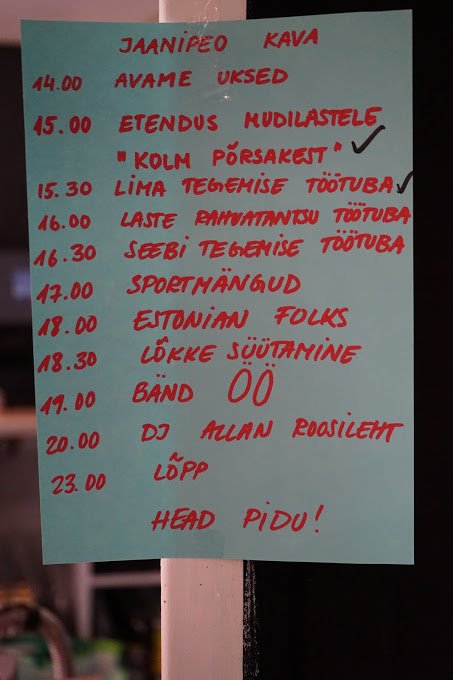 JAANIPEO KAVA
14.00 AVAME UKSED
15.00 ETENDUS MUDILASTELE
"KOLM PÕRSAKEST" ✓
15.30 LIMA TEGEMISE TÖÖTUBA ✓
16.00 LASTE RAHVATANTSU TÖÖTUBA
16.30 SEEBI TEGEMISE TÖÖTUBA
17.00 SPORTMÄNGUD
18.00 ESTONIAN FOLKS
18.30 LÕKKE SÜÜTAMINE
19.00 BÄND ÖÖ
20.00 DJ ALLAN ROOSILEHT
23.00 LÕPP
HEAD PIDU!